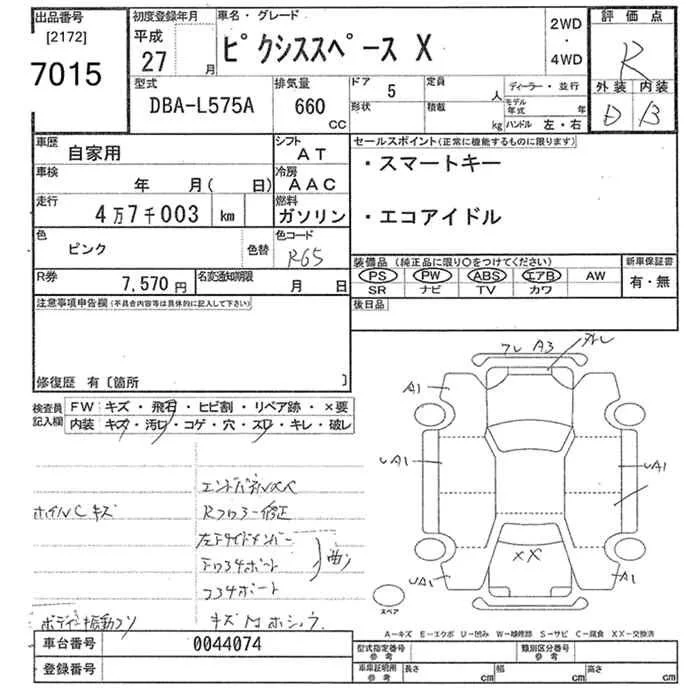 出品番号 [2172] 7015
初度登録年月 平成 27 月
車名・グレード ピクシススペース X
2WD ・ 4WD
評価点 R
型式 DBA-L575A
排気量 660 CC
ドア 5 形状
定員 人 積載 kg
ディーラー・並行
モデル年式 年
ハンドル 左・右
外装 内装
D B
車歴 自家用
シフト AT
車検 年 月( 日)
冷房 AAC
走行 4万7千003 km
燃料 ガソリン
色 ピンク 色替
色コード R65
R券 7,570円
名変通知期限 月 日
セールスポイント(正常に機能するものに限ります)
・スマートキー
・エコアイドル
装備品 (純正品に限り○をつけてください)
PS PW ABS エアB AW
SR ナビ TV カワ
新車保証書 有・無
後日品
注意事項申告欄(不具合内容等は具体的に記入して下さい)
修復歴 有〔箇所 〕
検査員記入欄
FW キズ・飛石・ヒビ割・リペア跡・×要
内装 キズ・汚れ・コゲ・穴・スレ・キレ・破レ
ホイルCキズ
エンドパネルXX
Rフロアー修正
左Fサイドメンバー
曲
キズ
A3
A1
UA1
UA1
XX
UA1
A1
スペア
A-キズ E-エクボ U-凹み W-補修跡 S-サビ C-腐食 XX-交換済
車台番号 0044074
登録番号
型式指定番号 参考
類別区分番号 参考
車庫証明用 参考 長さ cm 幅 cm 高さ cm